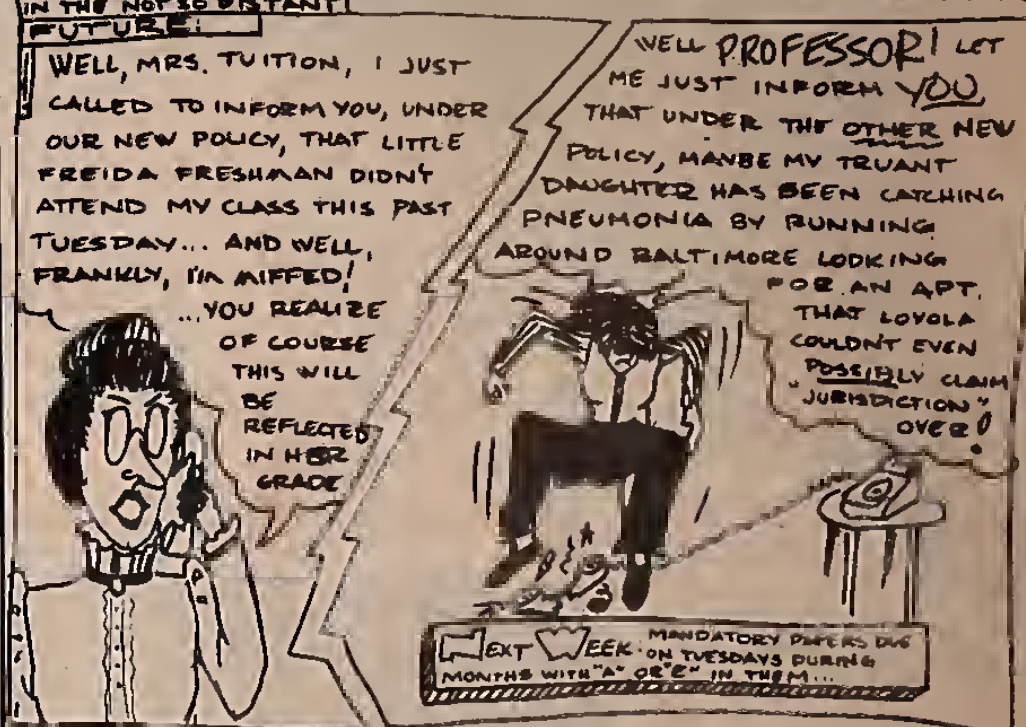 IN THE NOT SO DISTANT!
FUTURE:
WELL, MRS. TUITION, I JUST
CALLED TO INFORM YOU, UNDER
OUR NEW POLICY, THAT LITTLE
FREIDA FRESHMAN DIDN'T
ATTEND MY CLASS THIS PAST
TUESDAY... AND WELL,
FRANKLY, I'M MIFFED!
...YOU REALIZE
OF COURSE
THIS WILL
BE
REFLECTED
IN HER
GRADE
WELL PROFESSOR! LET
ME JUST INFORM YOU
THAT UNDER THE OTHER NEW
POLICY, MAYBE MY TRUANT
DAUGHTER HAS BEEN CATCHING
PNEUMONIA BY RUNNING
AROUND BALTIMORE LOOKING
FOR AN APT.
THAT LOYOLA
COULDN'T EVEN
POSSIBLY CLAIM
"JURISDICTION"
OVER!
NEXT WEEK: MANDATORY PAPERS DUE
ON TUESDAYS DURING
MONTHS WITH "A" OR "E" IN THEM...